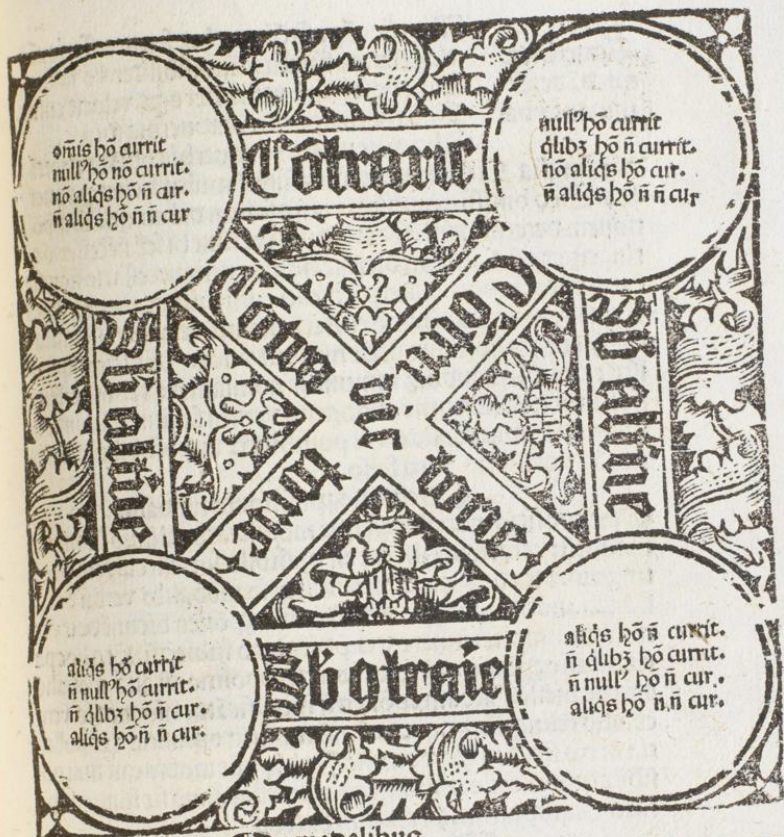 om̃is hõ currit
nullꝰ hõ nõ currit.
nõ aliq̃s hõ ñ cur.
ñ aliq̃s hõ ñ ñ cur
Cõtrarie
nullꝰ hõ currit
q̃libꝫ hõ ñ currit.
nõ aliq̃s hõ cur.
ñ aliq̃s hõ ñ ñ cur
Sb alt̃ne
Sb alt̃ne
aliq̃s hõ currit
ñ nullꝰ hõ currit.
ñ q̃libꝫ hõ ñ cur.
aliq̃s hõ ñ ñ cur.
Sb ɔtraie
aliq̃s hõ ñ currit.
ñ q̃libꝫ hõ currit.
ñ nullꝰ hõ ñ cur.
aliq̃s hõ ñ.ñ cur.
modalibus